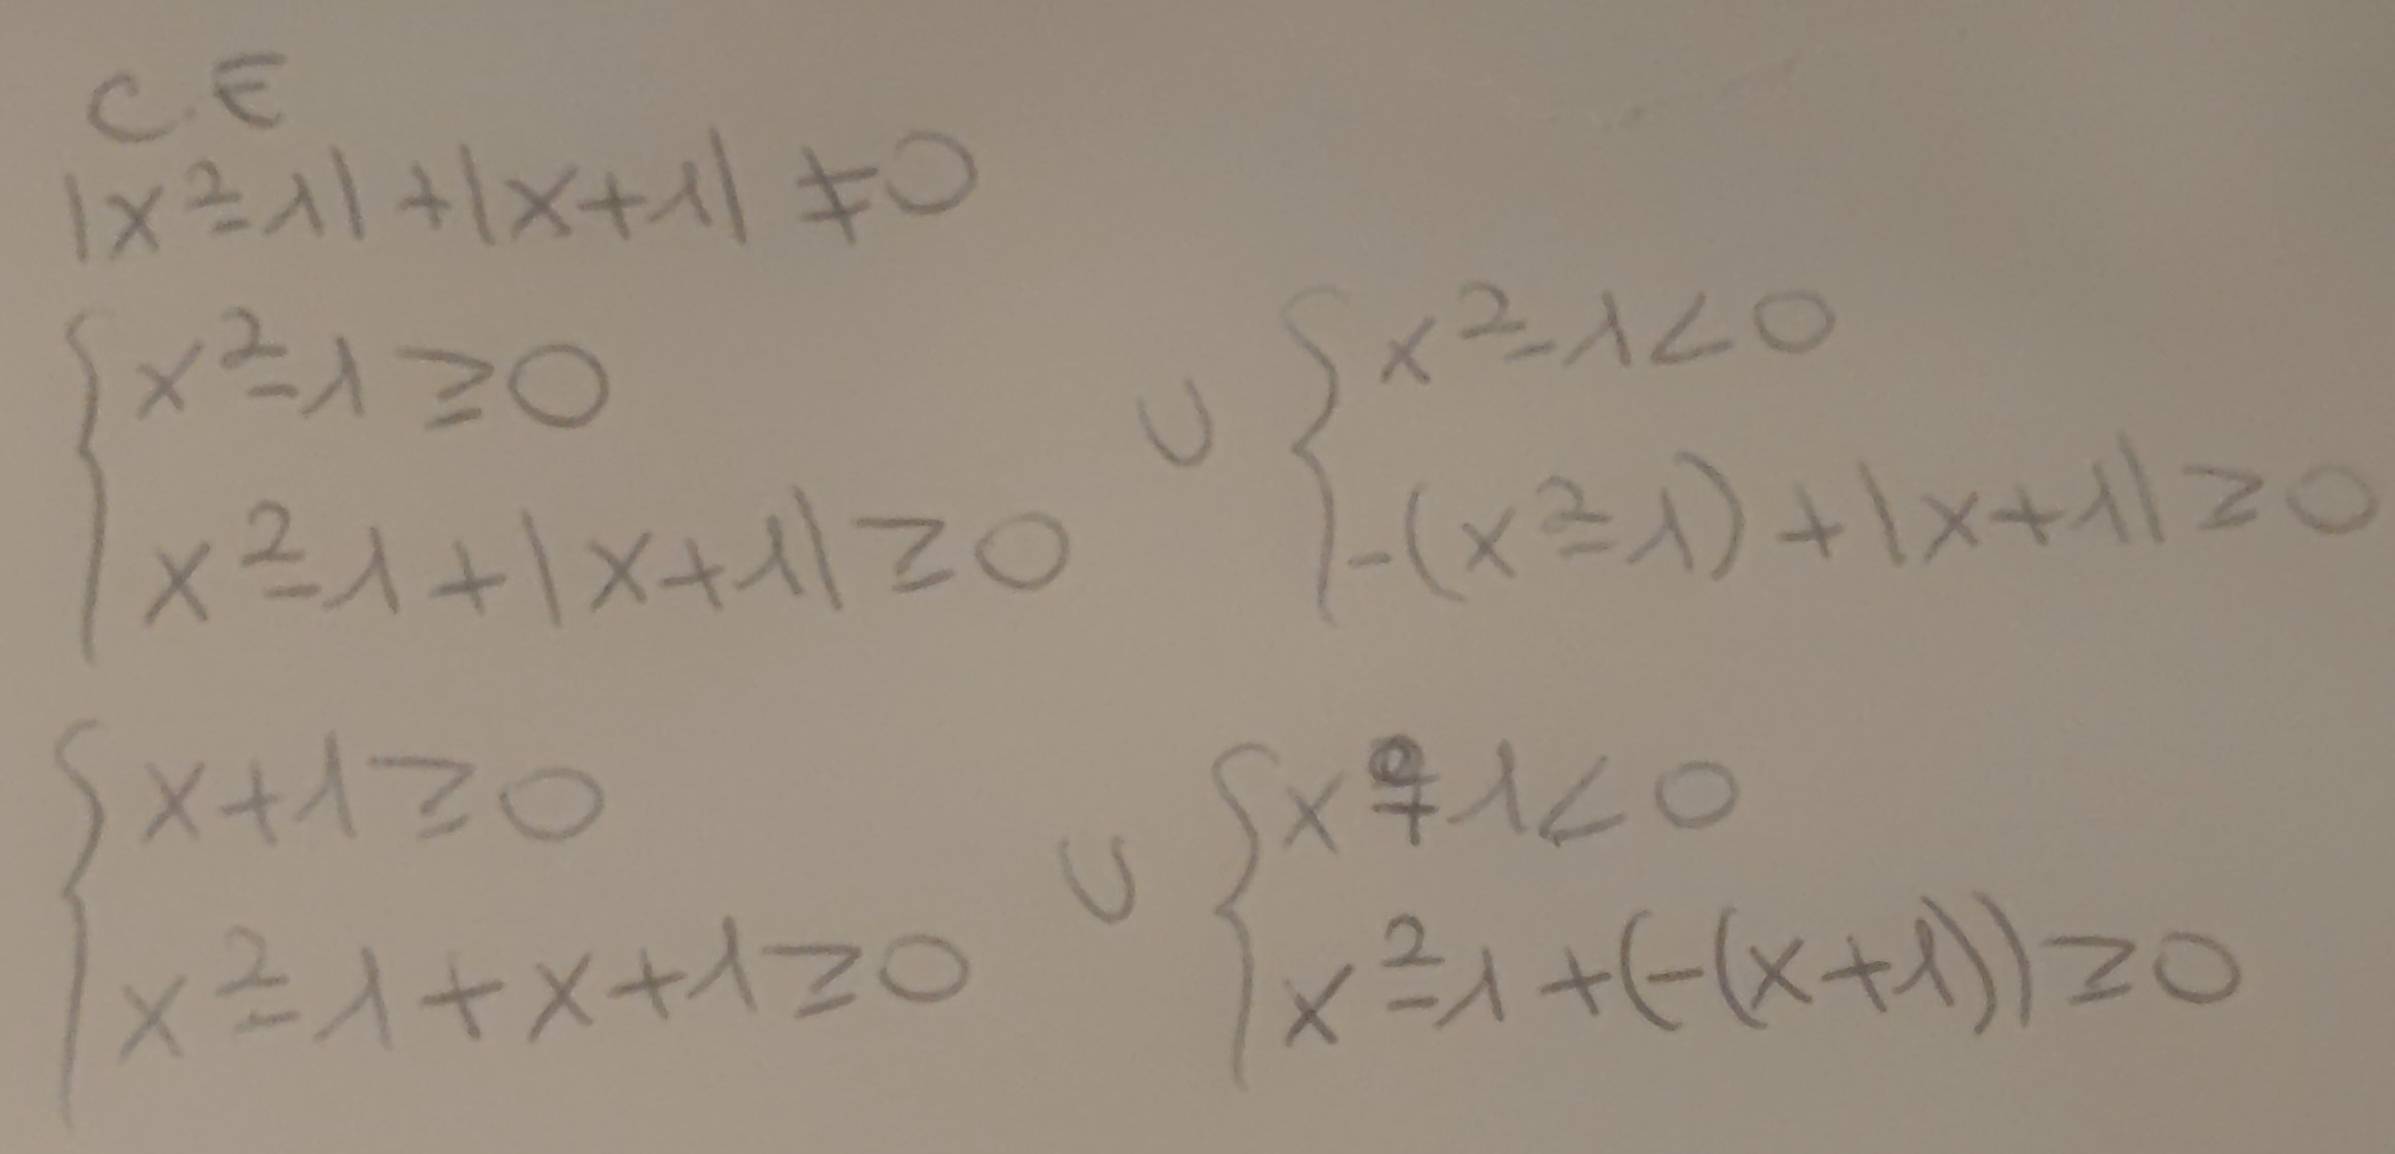 C.E
|x²-1|+|x+1| ≠0
{x²-1≥0 ∪ {x²-1<0
x²-1+|x+1|≥0 -(x²-1)+|x+1|≥0
{x+1≥0 ∪ {x+1<0
x²-1+x+1≥0 x²-1+(-(x+1))≥0